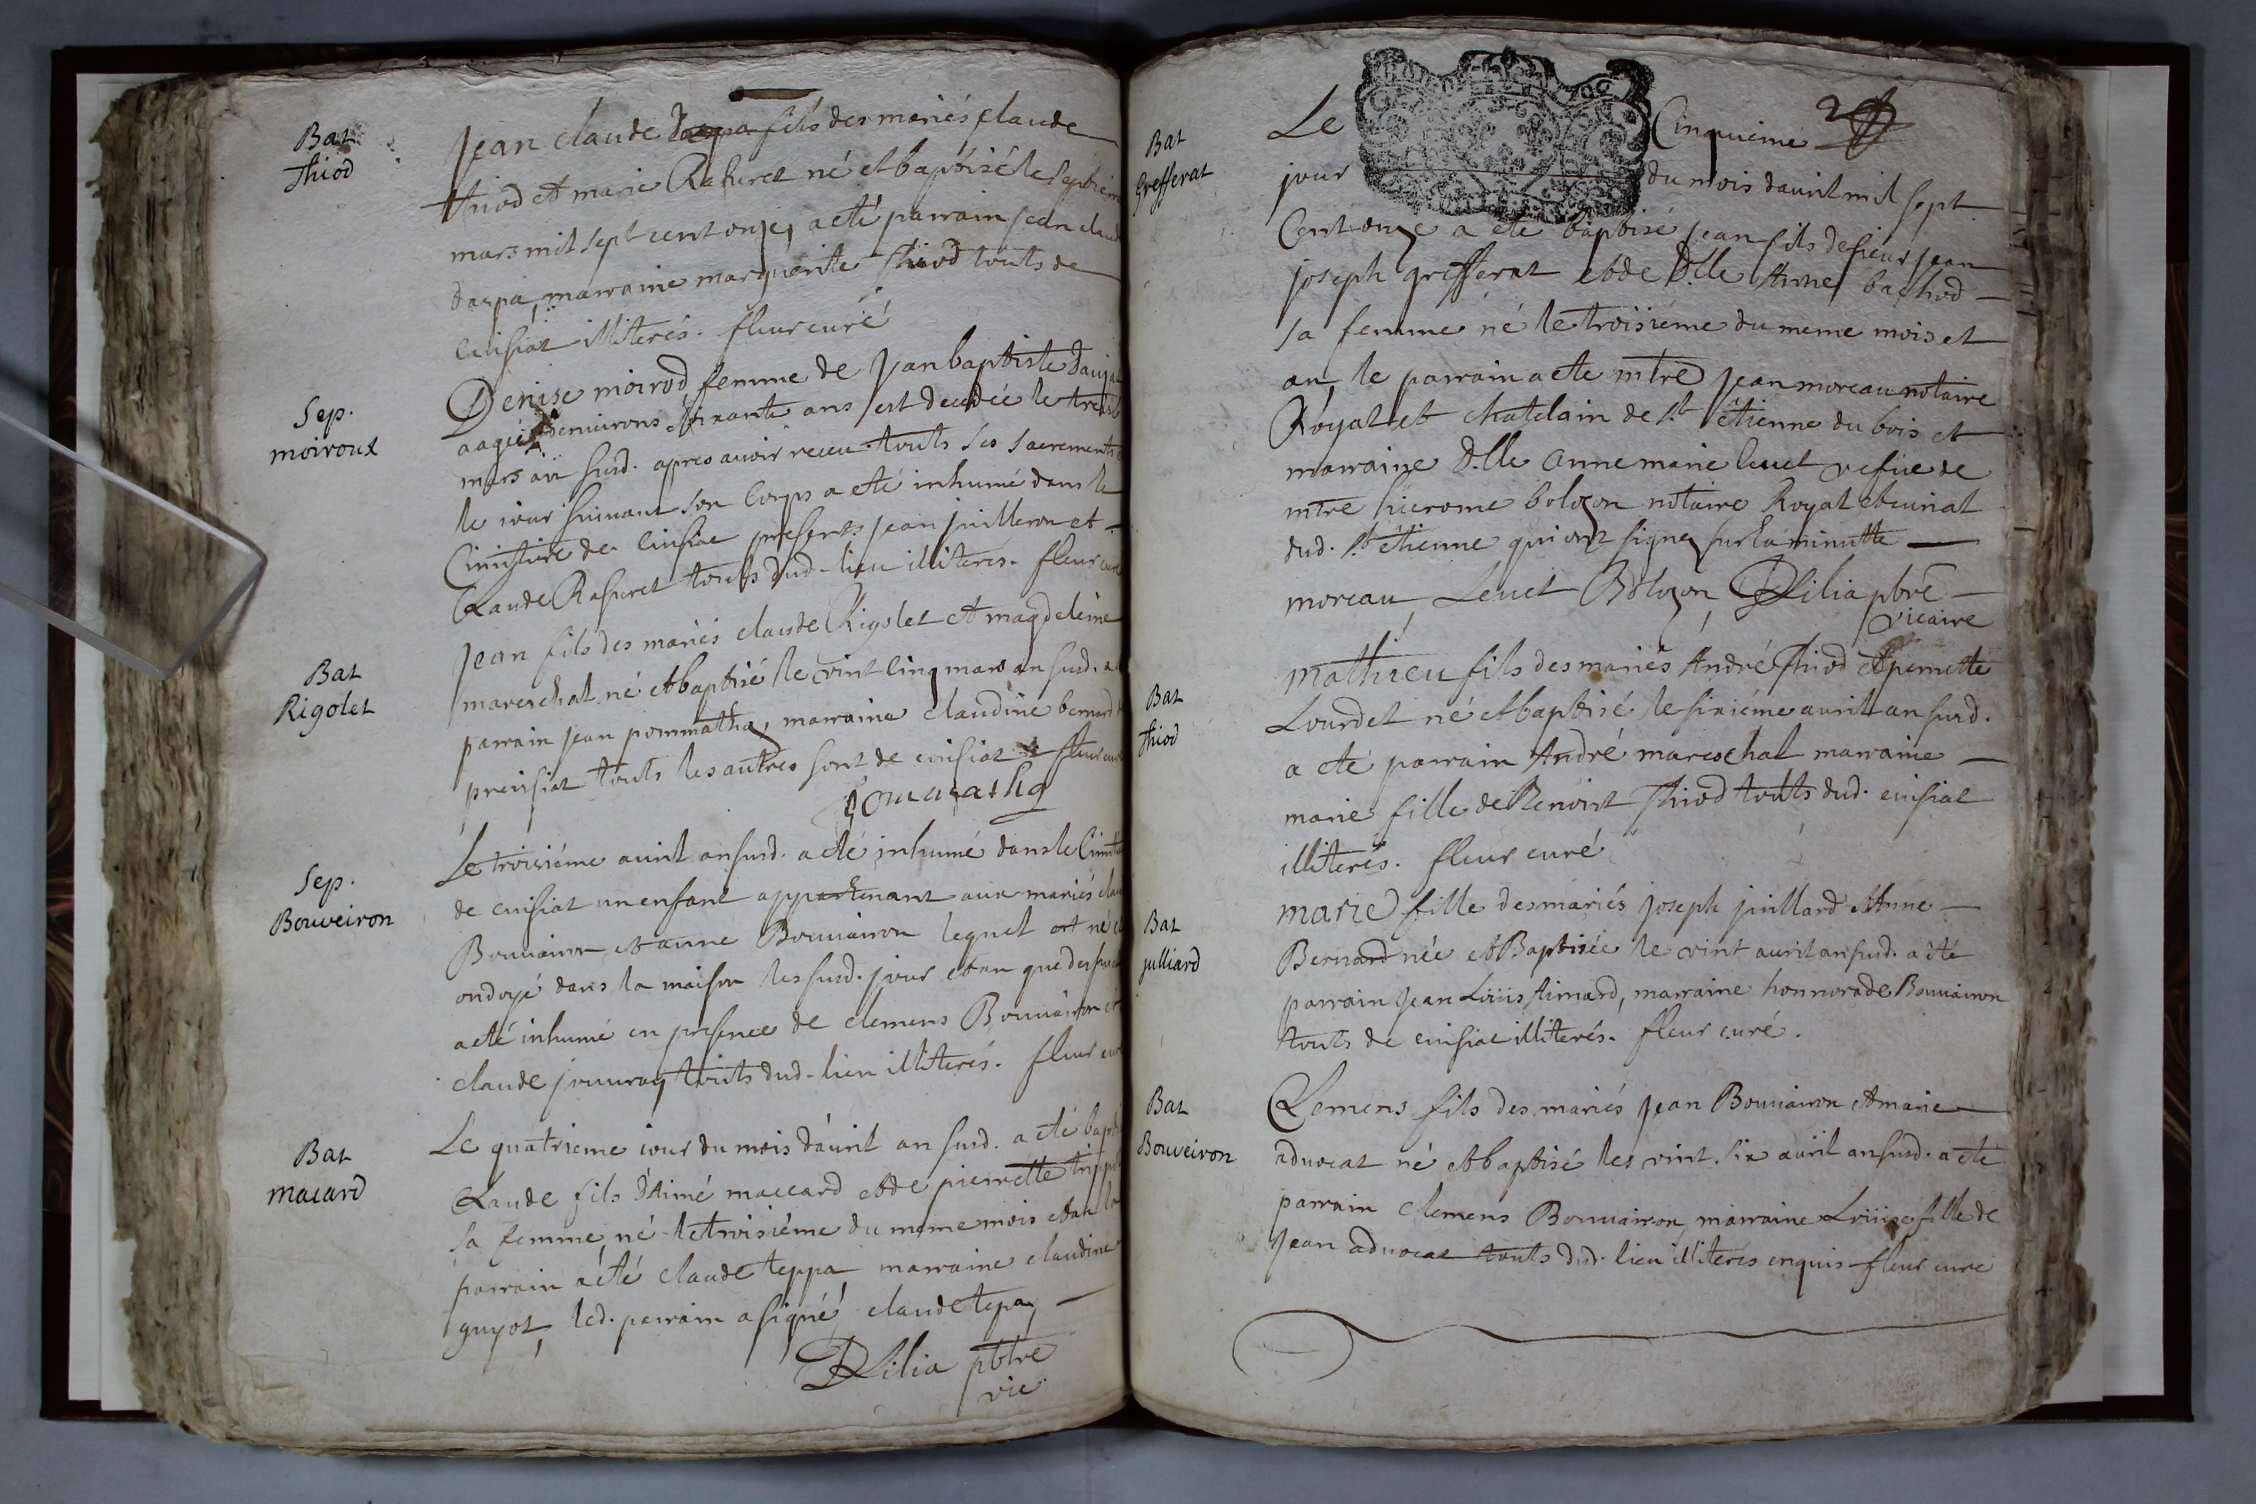 Bat
Thiod
Jean claude fils des mariés claude
thiod et marie Rafuret né et baptisé le septiém
mars mil sept cent onze, a eté parrain jean claud
dacpa, marraine marguerite Thiod touts de
cuisiat illiterés. fleur curé
Sep.
moiroux
Denise moirod femme de Jean baptiste
aagée denuirons soixante ans est decedée le
mars an susd. apres auoir receu touts ses sacrements
le iour suiuant son Corps a eté inhumé dans le
Cimistiere de cuisiat presents jean juilleron et
Claude Rafuret touts dud. lieu illiterés. fleur curé
Bat
Rigolet
Jean fils des mariés claude Rigolet et magdeleine
mareschal né et baptisé le vint cinq mars an susd. a
parrain jean pommathy, marraine claudine bernard
preisiat touts les autres sont de cuisiat fleur curé
pomathy
Sep.
Bouveiron
Le troisiéme auril an susd. a eté inhumé dans le
de cuisiat un enfant appartenant aux mariés
Bouuairon et anne Bouuairon lequel est né
ondoyé dans la maison les susd. jour et an que dessus
a eté inhumé en presence de clemens Bouuairon et
claude jouuray touts dud. lieu illiterés. fleur curé
Bat
macard
Le quatrieme iour du mois d'auril an susd. a eté
Claude fils d'Aimé maccard et de pierrette
sa femme né le troisiéme du meme mois et an
parrain a été claude teppa marraine claudine
guyot, led. parrain a signé claude tepa,
Dilia pbtre
vic
Bat
Grefferat
Le Cinquieme 2
jour du mois dauril mil sept
Cent onze a eté baptisé jean fils de sieur jean
joseph grefferat et de D.lle Anne bachod
sa femme né le troisiéme du meme mois et
an, le parrain a eté mtre jean moreau notaire
Royal et chatelain de st etienne du bois et
marraine D.lle anne marie leuet vefue de
mtre hierome bolozon notaire Royal et curial
dud. st etienne qui ont signé sur la minutte
moreau, Leuet Bolozon, Dilia pbre
vicaire
Bat
Thiod
mathieu fils des mariés André Thiod et pernette
Lourdet né et baptisé le sixiéme auril an susd.
a eté parrain André mareschal marraine
marie fille de Benoist Thiod touts dud. cuisiat
illiterés. fleur curé
Bat
julliard
marie fille des mariés joseph juillard et Anne
Bernard née et Baptisée le vint auril an susd. a été
parrain jean Loüis Aimard, marraine honnorade Bouuairon
touts de cuisiat illiterés. fleur curé.
Bat
Bouveiron
Clemens fils des mariés jean Bouuairon et marie
aduocat né et baptisé les vint. six auril an susd. a eté
parrain clemens Bouuairon, marraine Loüise fille de
Jean aduocat touts dud. lieu illiterés enquis fleur curé